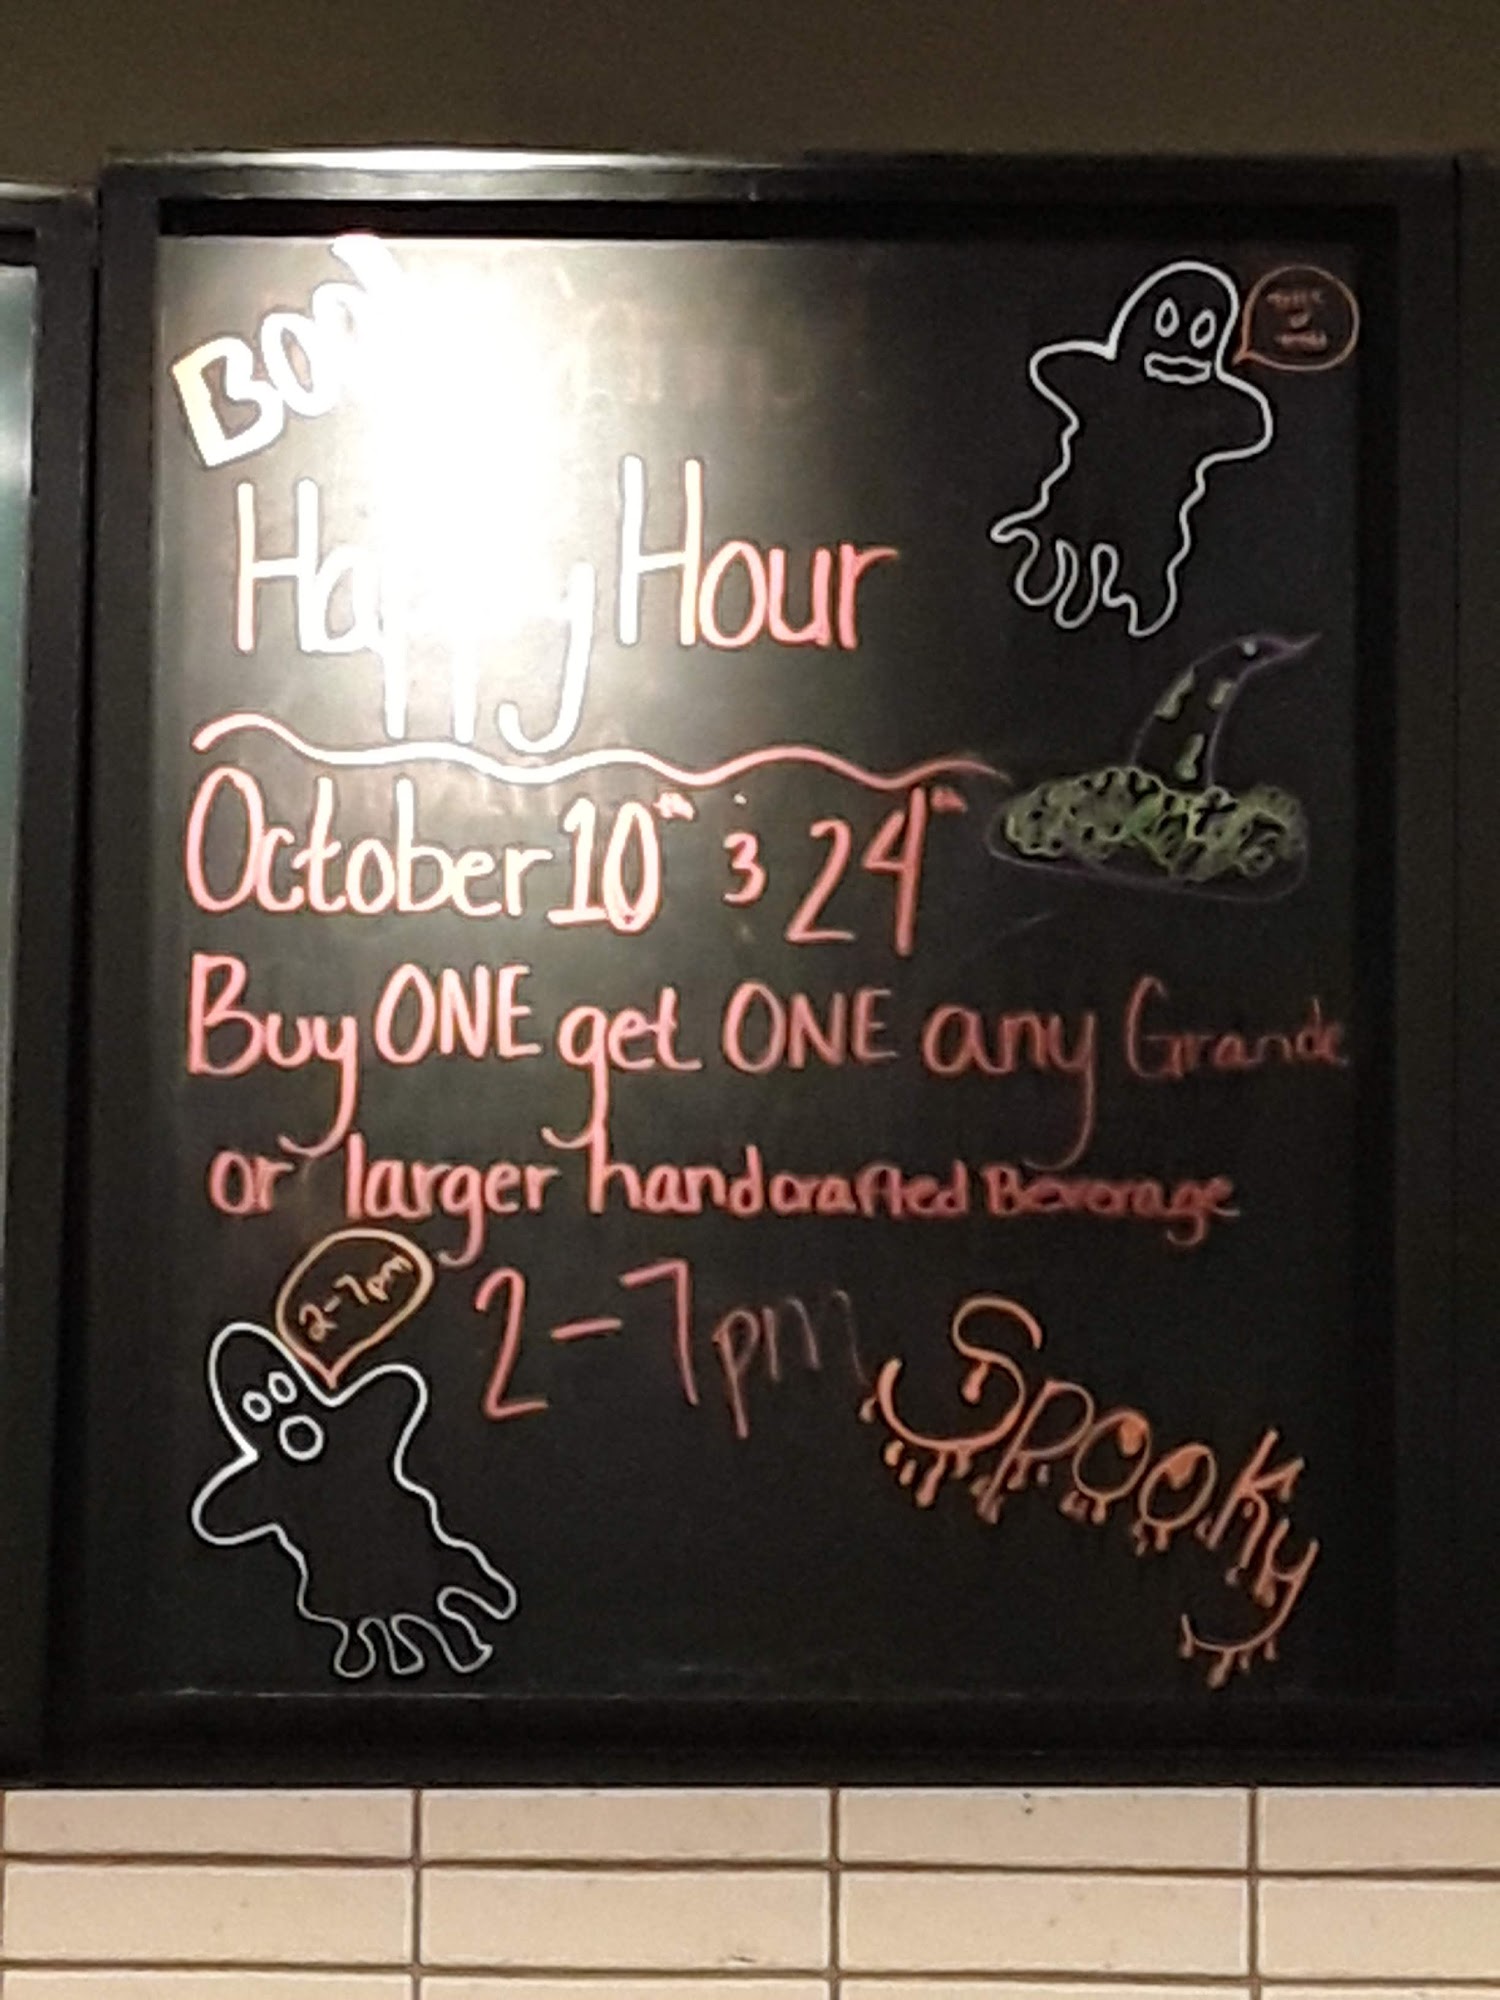 Boo!
Happy Hour
October 10th & 24th
Buy ONE get ONE any Grande
or larger handcrafted Beverage
2-7pm
2-7pm
Spooky